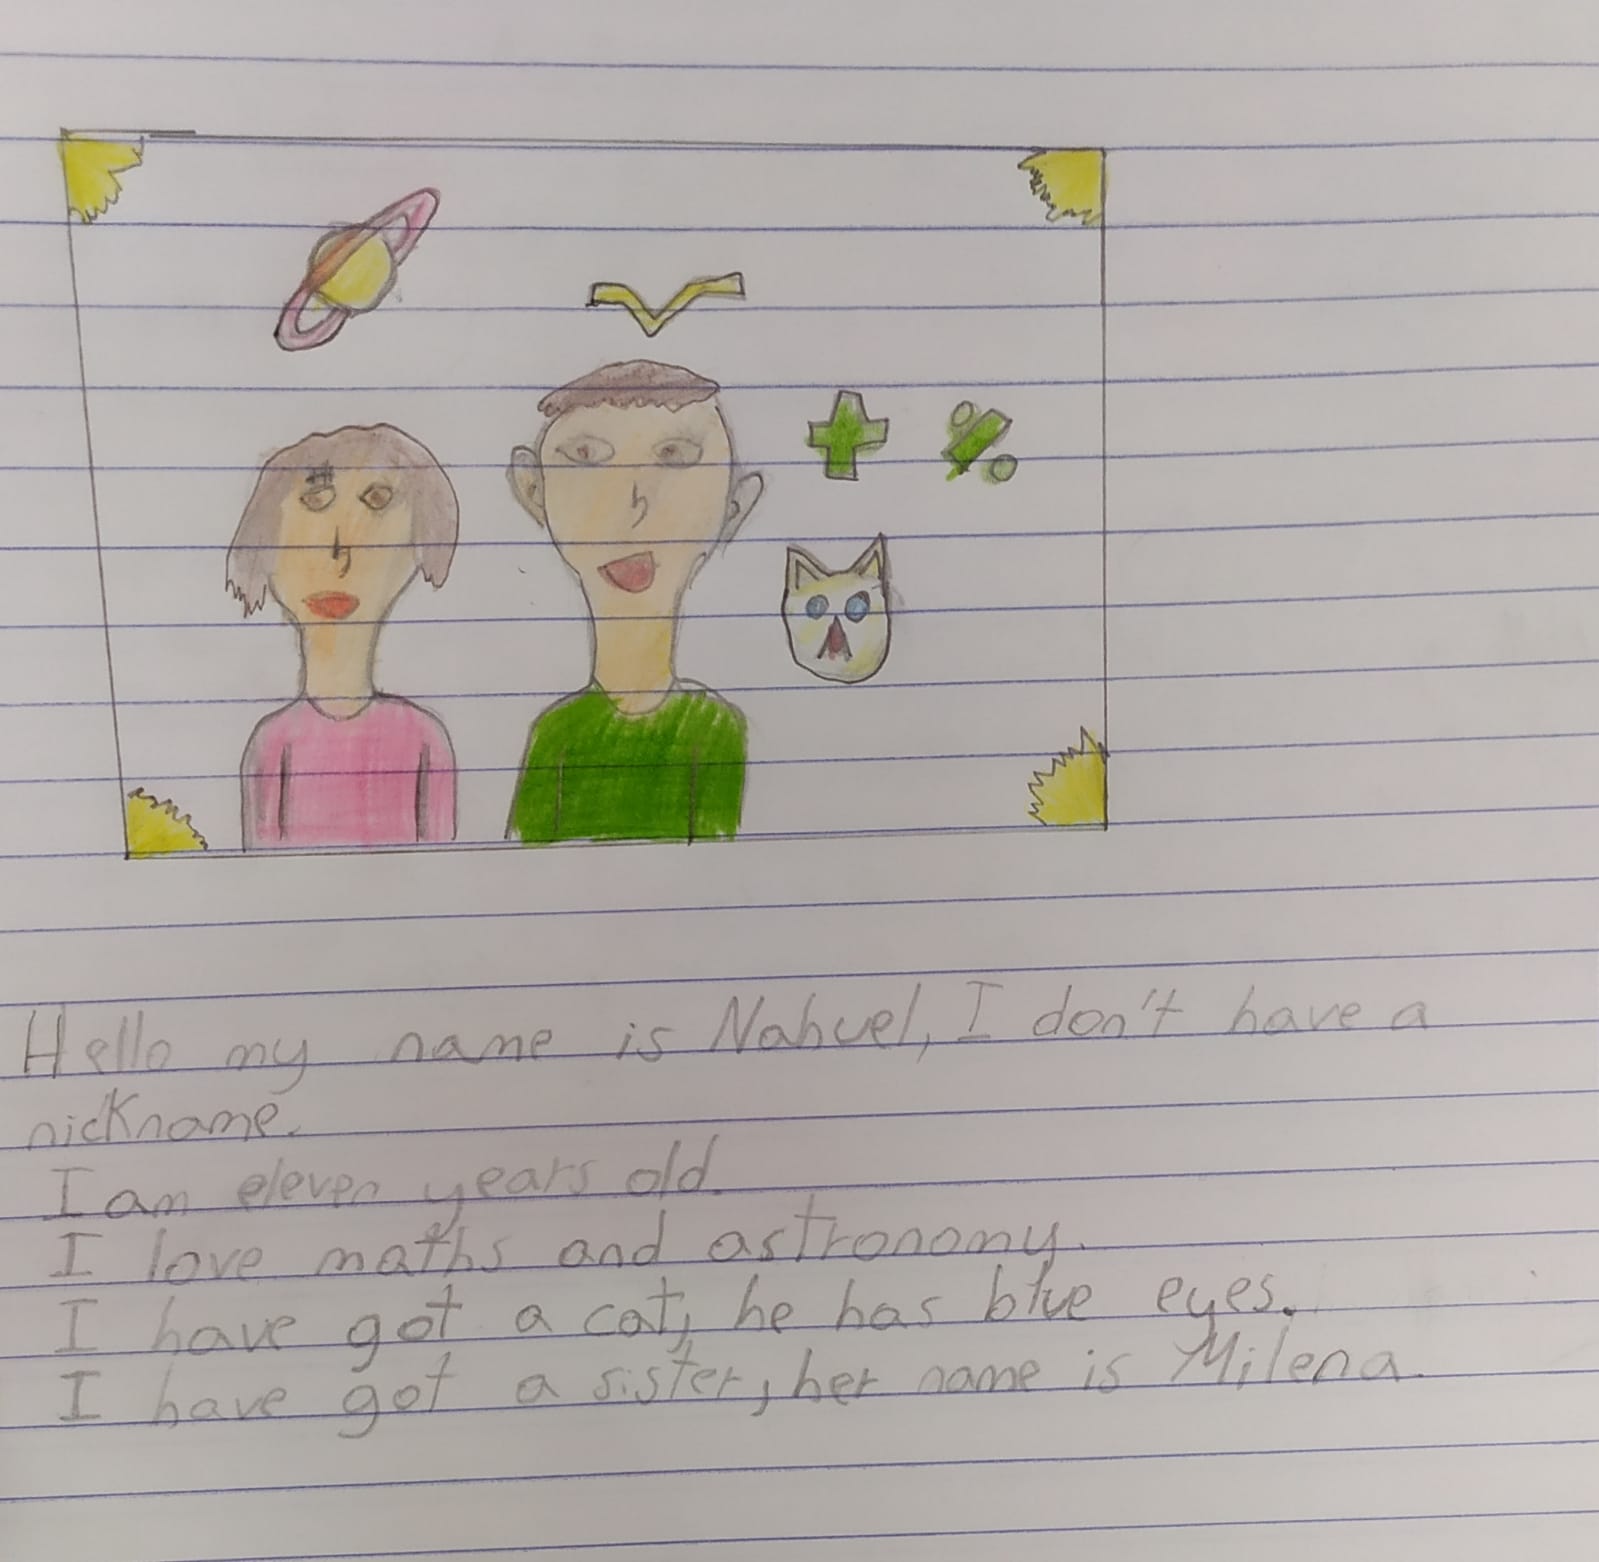 Hello my name is Nahuel, I don't have a
nickname.
I am eleven years old.
I love maths and astronomy.
I have got a cat, he has blue eyes.
I have got a sister, her name is Milena.